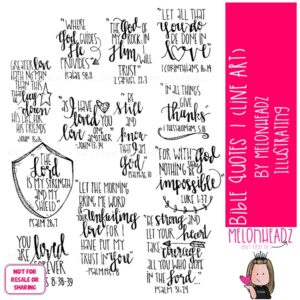 "WHERE
God
Guides
He
PROVIDES"
ISAIAH 58:11
"THE God
OF MY
ROCK; IN
Him
WILL I
TRUST"
2 SAMUEL 22:3
"LET ALL THAT
you do
BE DONE IN
LOVE
1 CORINTHIANS 16:14
GREATER love
HATH NO MAN
THAN THIS
THAT
lay
down
HIS LIFE FOR
HIS FRIENDS
JOHN
"as I
HAVE loved
you
love one
another"
JOHN
"Be
Still
and
Know
that I am
God"
PSALM
"IN ALL
THINGS give
thanks"
1 THESSALONIANS 5:18
THE
Lord
IS MY STRENGTH
AND MY
SHIELD
PSALM 28:7
"FOR WITH GOD
NOTHING
impossible
LUKE 1:37
"LET THE MORNING
BRING ME WORD
OF YOUR
unfailing
love FOR I
HAVE PUT MY
TRUST IN
you"
PSALM
"Be STRONG AND
LET YOUR heart
TAKE
courage
ALL YOU WHO HOPE
IN THE
LORD"
PSALM 31:24
YOU are
loved
FOREVER
38-39
NOT FOR
RESALE OR
SHARING
BIBLE QUOTES 1 (LINE ART)
BY MELONHEADZ
ILLUSTRATING
MELONHEADZ